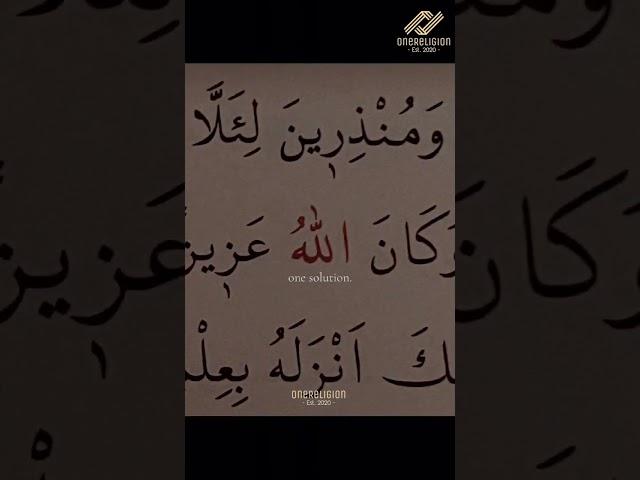 ONERELIGION
- Est. 2020 -
وَمُنْذِرِينَ لِئَلَّا
وَكَانَ اللّٰهُ عَزِيز
one solution.
اَنْزَلَهُ بِعِلْمِ
ONERELIGION
- Est. 2020 -